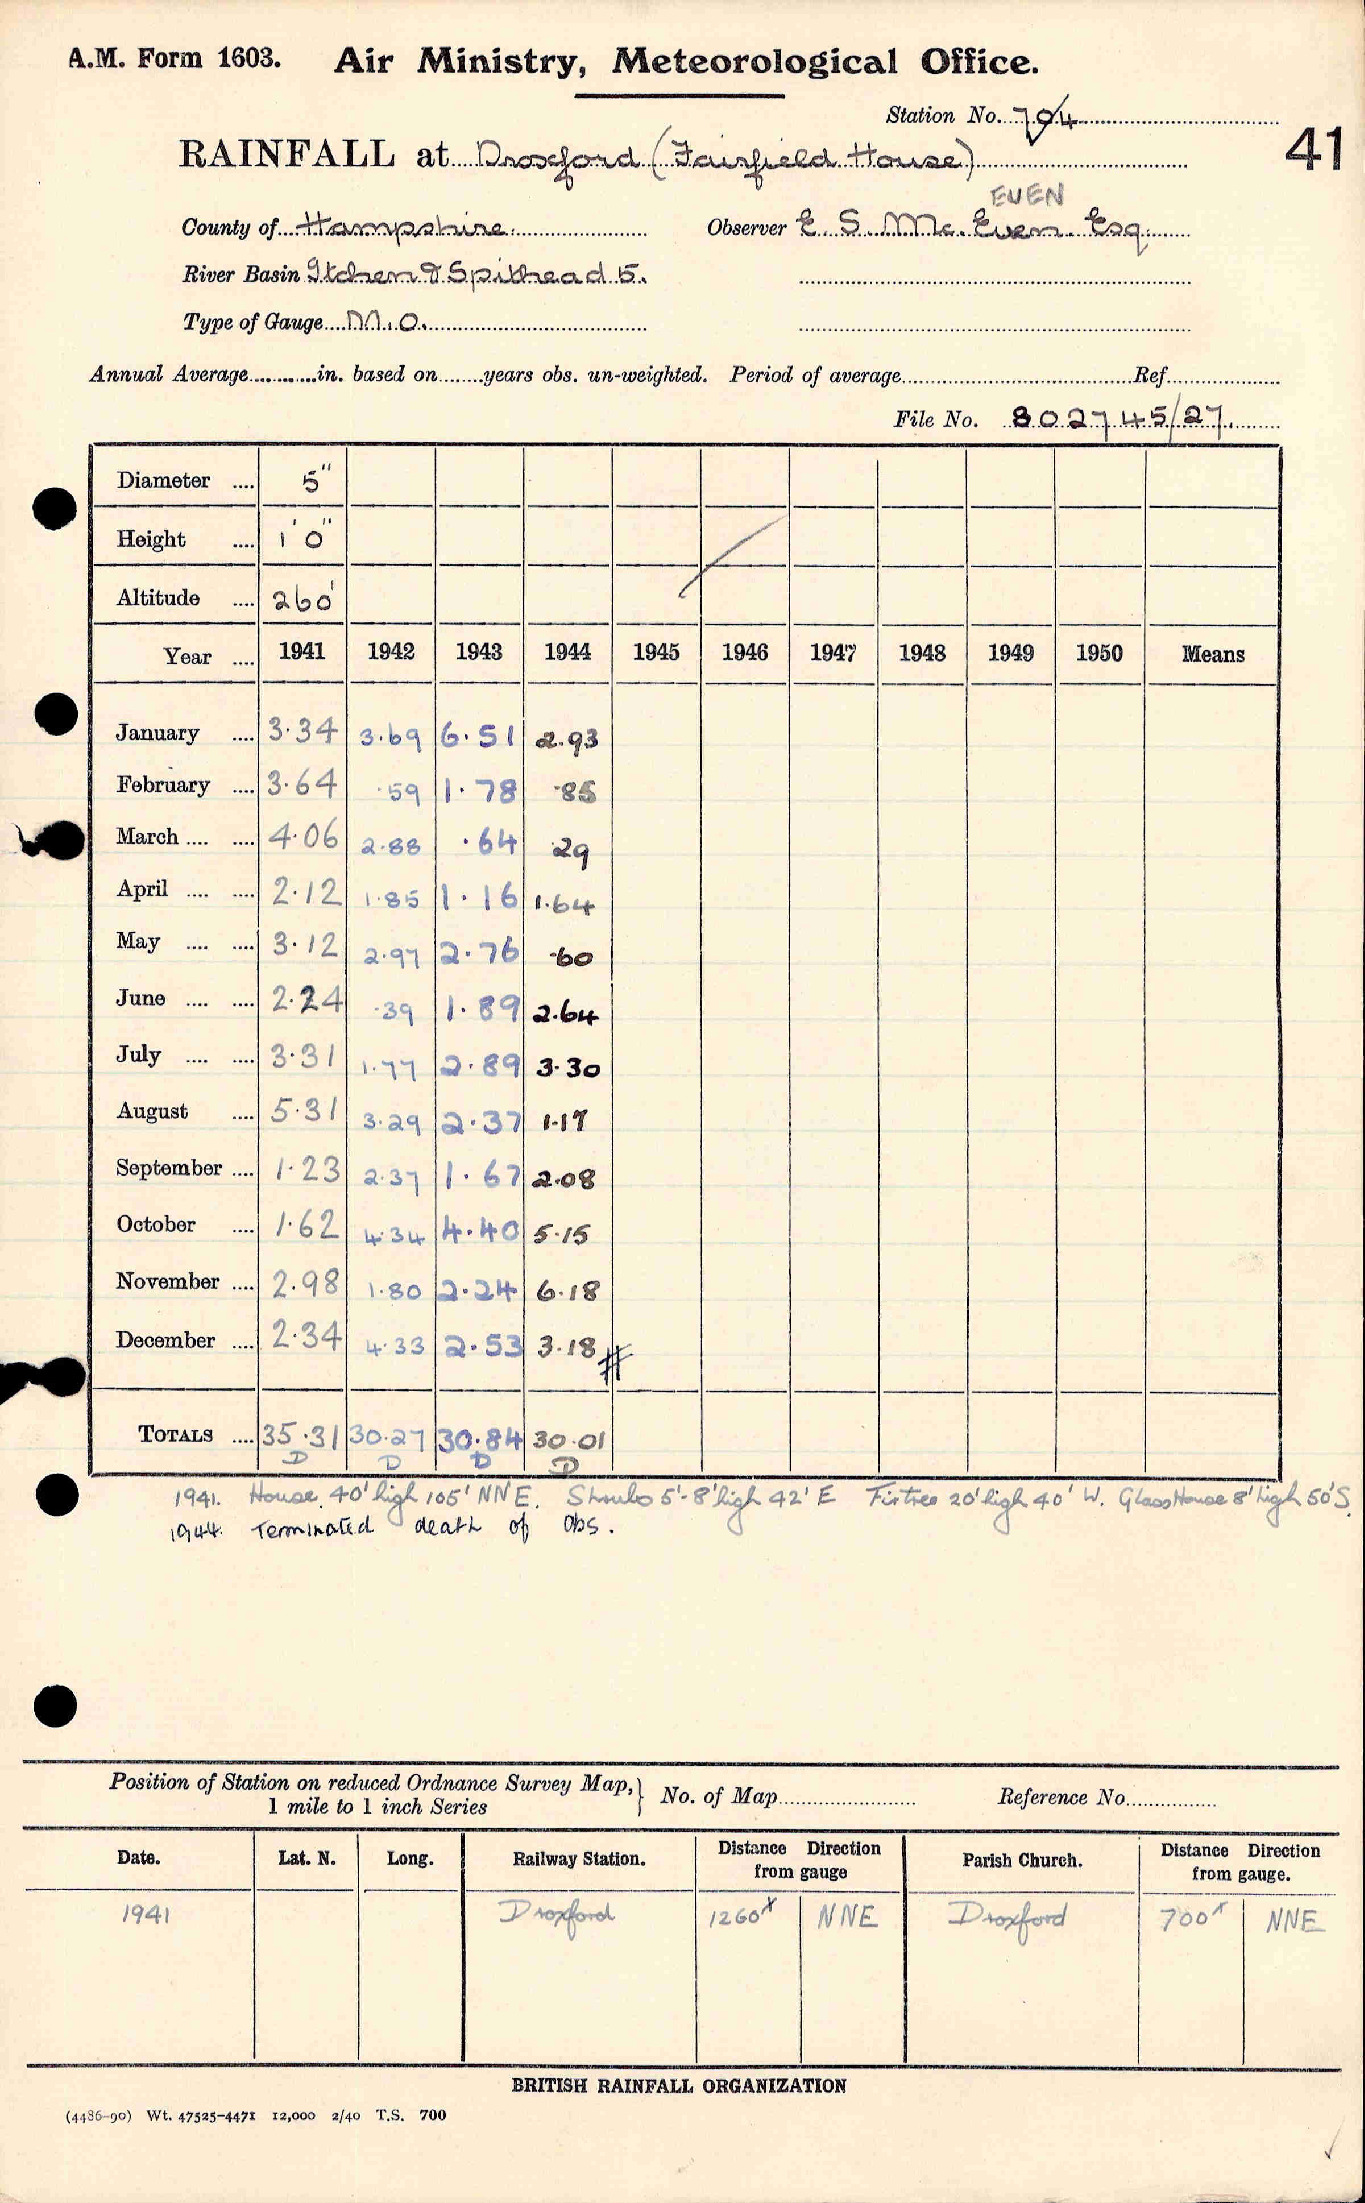 A.M. Form 1603. Air Ministry, Meteorological Office.
Station No. 704
41
RAINFALL at Droxford (Fairfield House)
EUEN
County of Hampshire. Observer E. S. Mc. Euen. Esq
River Basin Itchen & Spithead 5.
Type of Gauge M.O.
Annual Average in. based on years obs. un-weighted. Period of average Ref.
File No. 802745/27.
Diameter 5"
Height 1'0"
Altitude 260'
Year 1941 1942 1943 1944 1945 1946 1947 1948 1949 1950 Means
January 3.34 3.69 6.51 2.93
February 3.64 .59 1.78 .85
March 4.06 2.88 .64 .29
April 2.12 1.85 1.16 1.64
May 3.12 2.97 2.76 .60
June 2.24 .39 1.89 2.64
July 3.31 1.77 2.89 3.30
August 5.31 3.29 2.37 1.17
September 1.23 2.37 1.67 2.08
October 1.62 4.34 4.40 5.15
November 2.98 1.80 2.24 6.18
December 2.34 4.33 2.53 3.18 #
TOTALS 35.31 30.27 30.84 30.01
D D D D
1941. House 40' high 105' NNE. Shrubs 5'-8' high 42' E Firtree 20' high 40' W. GlassHouse 8' high 50' S.
1944. Terminated death of obs.
Position of Station on reduced Ordnance Survey Map, } No. of Map Reference No.
1 mile to 1 inch Series
Date. Lat. N. Long. Railway Station. Distance Direction from gauge Parish Church. Distance Direction from gauge.
1941 Droxford 1260x NNE Droxford 700x NNE
BRITISH RAINFALL ORGANIZATION
(4486-90) Wt. 47525-4471 12,000 2/40 T.S. 700